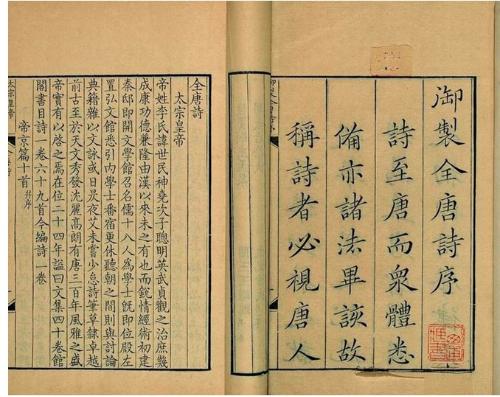 御製全唐詩序
詩至唐而眾體悉
備亦諸法畢該故
稱詩者必視唐人
全唐詩
太宗皇帝
帝姓李氏諱世民神堯次子聰明英武貞觀之治庶幾
成康功德兼隆由漢以來未之有也而銳情經術初建
秦邸即開文學館召名儒十八人為學士既即位殿左
置弘文館悉引內學士番宿更休聽朝之間則與討論
典籍雜以文詠或日昃夜艾未嘗少怠詩筆草隸卓越
前古至於天文秀發沈麗高朗有唐三百年風雅之盛
帝實有以啓之焉在位二十四年諡曰文集四十卷館
閣書目詩一卷六十九首今編詩一卷
帝京篇十首并序
太宗皇帝